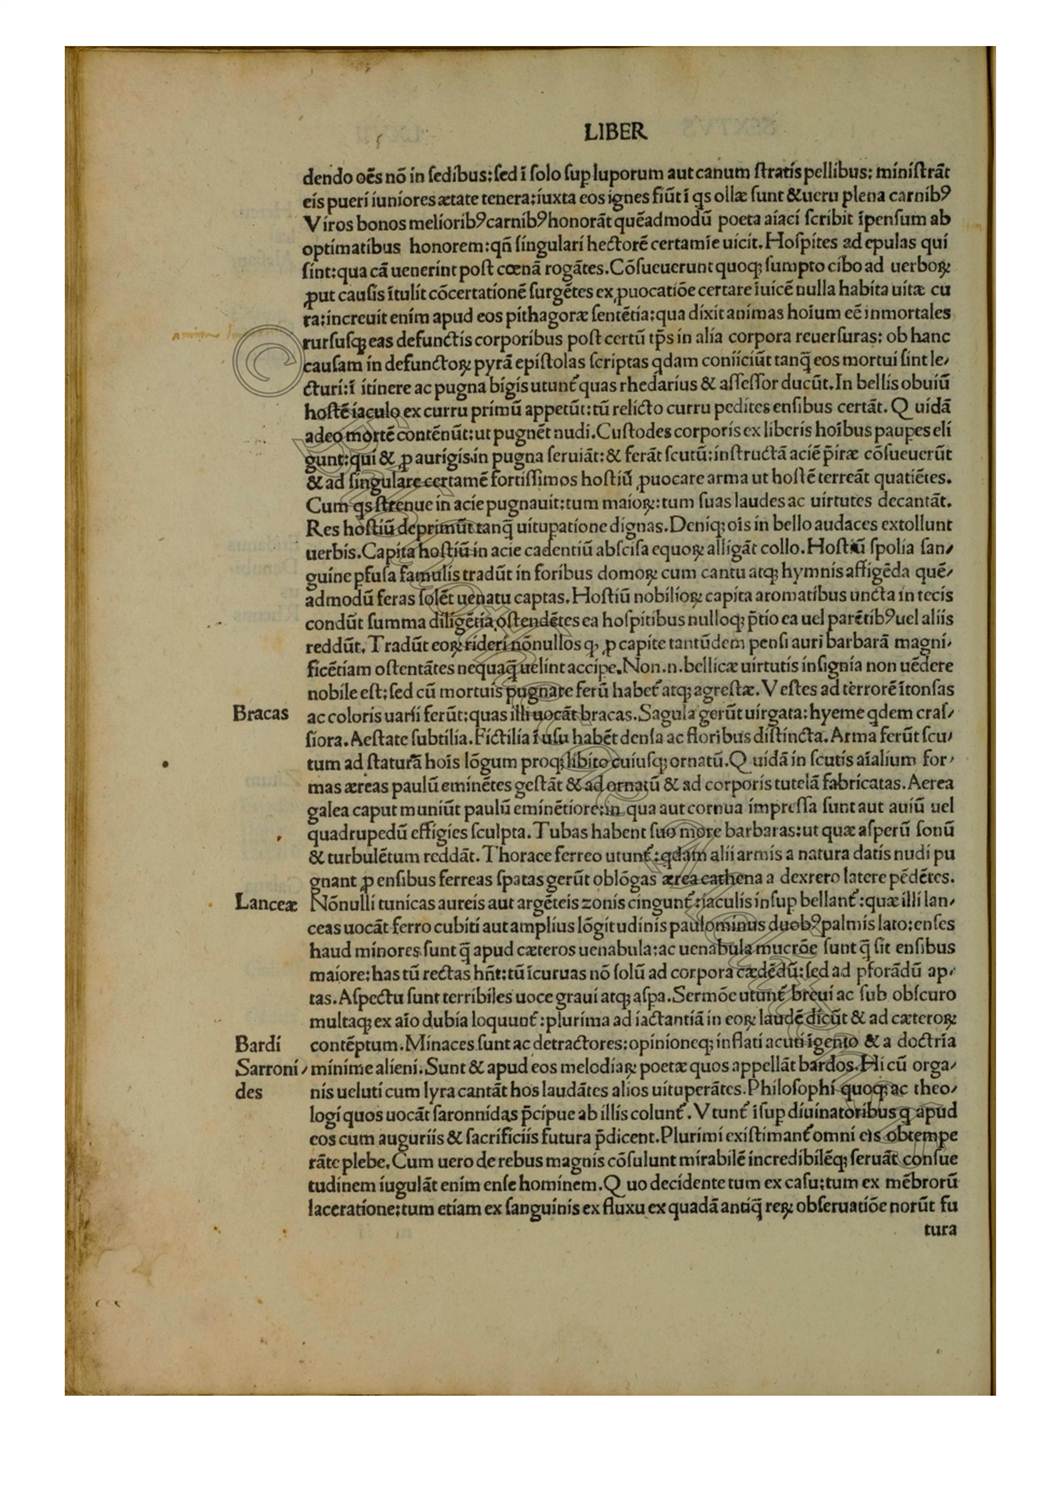 LIBER
dendo oēs nō in sedibus: sed ī solo sup luporum aut canum stratis pellibus: ministrāt
eis pueri iuniores ætate tenera: iuxta eos ignes fiūt ī qs ollæ sunt & ueru plena carnibꝰ
Viros bonos melioribꝰ carnibꝰ honorāt quēadmodū poeta aiaci scribit īpensum ab
optimatibus honorem: qñ singulari hectorē certamīe uicit. Hospites ad epulas qui
sint: qua cā uenerint post cœnā rogātes. Cōsueuerunt quoqꝫ sumpto cibo ad uerboꝝ
ꝓut causis ītulit cōcertationē surgētes ex ꝓuocatiōe certare īuicē nulla habita uitæ cu
ra: increuit enim apud eos pithagoræ sentētia: qua dixit animas hoium eē inmortales
rursusqꝫ eas defunctis corporibus post certū tp̄s in alia corpora reuersuras: ob hanc
causam in defunctoꝝ pyrā epistolas scriptas qdam coniiciūt tanq̄ eos mortui sint le/
cturi: ī itinere ac pugna bigis utunt̄ quas rhedarius & assessor ducūt. In bellis obuiū
hostē iaculo ex curru primū appetūt: tū relicto curru pedites ensibus certāt. Quidā
adeo mortē contēnūt: ut pugnēt nudi. Custodes corporis ex liberis hoībus paupes eli
gunt: qui & ꝓ aurigis in pugna seruiāt: & ferāt scutū: instructā aciē p̄iræ cōsueuerūt
& ad singulare certamē fortissimos hostiū ꝓuocare arma ut hostē terreāt quatiētes.
Cum qs strenue in acie pugnauit: tum maioꝝ: tum suas laudes ac uirtutes decantāt.
Res hostiū deprimūt tanq̄ uitupatione dignas. Deniqꝫ oīs in bello audaces extollunt
uerbis. Capita hostiū in acie cadentiū abscisa equoꝝ alligāt collo. Hostiū spolia san/
guine pfusa famulis tradūt in foribus domoꝝ cum cantu atqꝫ hymnis affigēda quē/
admodū feras solēt uenatu captas. Hostiū nobilioꝝ capita aromatibus uncta in tecis
condūt summa diligētia ostendētes ea hospitibus nulloqꝫ p̄tio ea uel parētibꝰ uel aliis
reddūt. Tradūt eoꝝ rideri nōnullos qꝫ ꝓ capite tantūdem pensi auri barbarā magni/
ficētiam ostentātes nequaq̄ uelint accipe. Non .n. bellicæ uirtutis insignia non uēdere
nobile est: sed cū mortuis pugnare ferū habet̄ atqꝫ agrestæ. Vestes ad terrorē ītonsas
Bracas ac coloris uarii ferūt: quas illi uocāt bracas. Sagula gerūt uirgata: hyeme qdem cras/
siora. Aestate subtilia. Fictilia ī usu habēt densa ac floribus distincta. Arma ferūt scu/
tum ad staturā hois lōgum proqꝫ libito cuiusqꝫ ornatū. Quidā in scutis aīalium for/
mas æreas paulū eminētes gestāt & ad ornatū & ad corporis tutelā fabricatas. Aerea
galea caput muniūt paulū eminētiore: in qua aut cornua impressa sunt aut auiū uel
quadrupedū effigies sculpta. Tubas habent suo more barbaras: ut quæ asperū sonū
& turbulētum reddāt. Thorace ferreo utunt̄: qdam alii armis a natura datis nudi pu
gnant ꝓ ensibus ferreas spatas gerūt oblōgas ærea cathena a dexrero latere pēdētes.
Lanceæ Nōnulli tunicas aureis aut argēteis zonis cingunt̄: iaculis insup bellant̄: quæ illi lan/
ceas uocāt ferro cubiti aut amplius lōgitudinis paulominus duobꝰ palmis lato: enses
haud minores sunt q̄ apud cæteros uenabula: ac uenabula mucrōe sunt q̄ sit ensibus
maiore: has tū rectas hn̄t: tū īcuruas nō solū ad corpora cædēdū: sed ad pforādū ap/
tas. Aspectu sunt terribiles uoce graui atqꝫ aspa. Sermōe utunt̄ breui ac sub obscuro
multaqꝫ ex aīo dubia loquunt̄: plurima ad iactantiā in eoꝝ laudē dicūt & ad cæteroꝝ
Bardi contēptum. Minaces sunt ac detractores: opinioneqꝫ inflati acuti īgenio & a doctrīa
Sarroni/ minime alieni. Sunt & apud eos melodiaꝝ poetæ quos appellāt bardos. Hi cū orga/
des nis ueluti cum lyra cantāt hos laudātes alios uituperātes. Philosophi quoqꝫ ac theo/
logi quos uocāt saronnidas p̄cipue ab illis colunt̄. Vtunt̄ īsup diuinatoribus q apud
eos cum auguriis & sacrificiis futura p̄dicent. Plurimi existimant̄ omni eis obtempe
rāte plebe. Cum uero de rebus magnis cōsulunt mirabilē incredibilēqꝫ seruāt consue
tudinem iugulāt enim ense hominem. Quo decidente tum ex casu: tum ex mēbrorū
laceratione: tum etiam ex sanguinis ex fluxu ex quadā antiq̄ reꝝ obseruatiōe norūt fu
tura